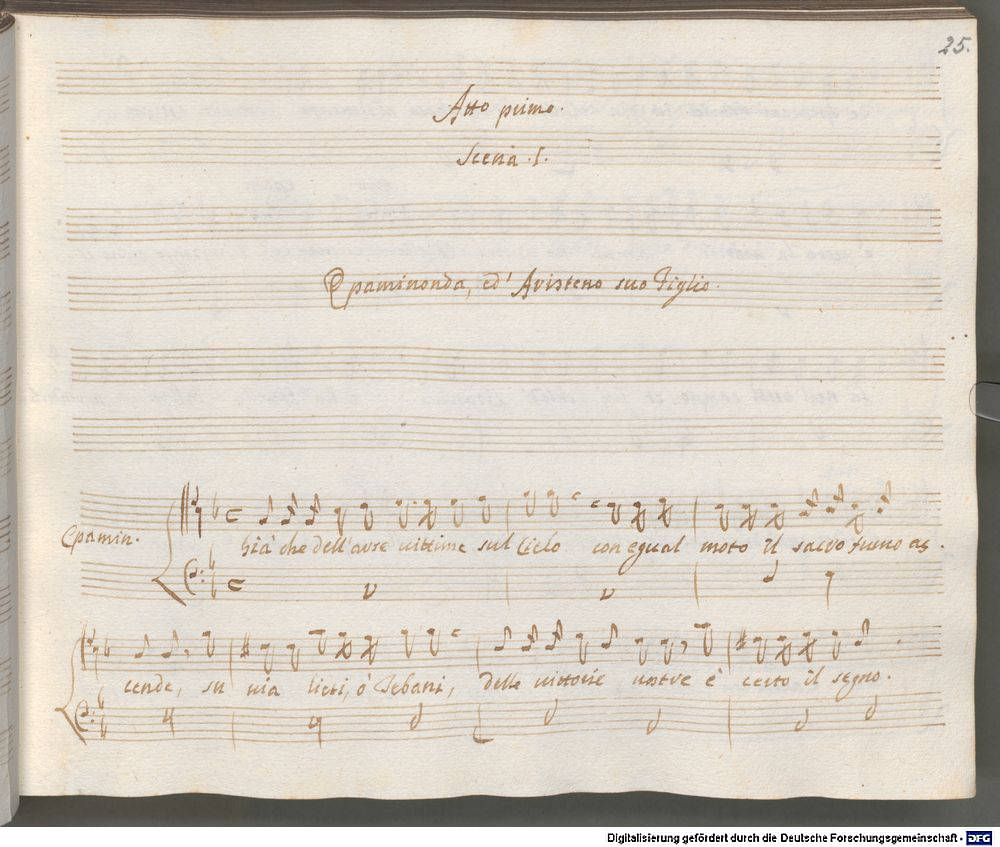 25.
Atto primo.
Scena .I.
Epaminonda, ed' Aristeno suo Figlio.
Epamin.
Già che dell'arse vittime sul Cielo con egual moto il sacro fumo as.
cende, su via lieti, ò Tebani, delle vittorie nostre è certo il segno.
Digitalisierung gefördert durch die Deutsche Forschungsgemeinschaft - DFG